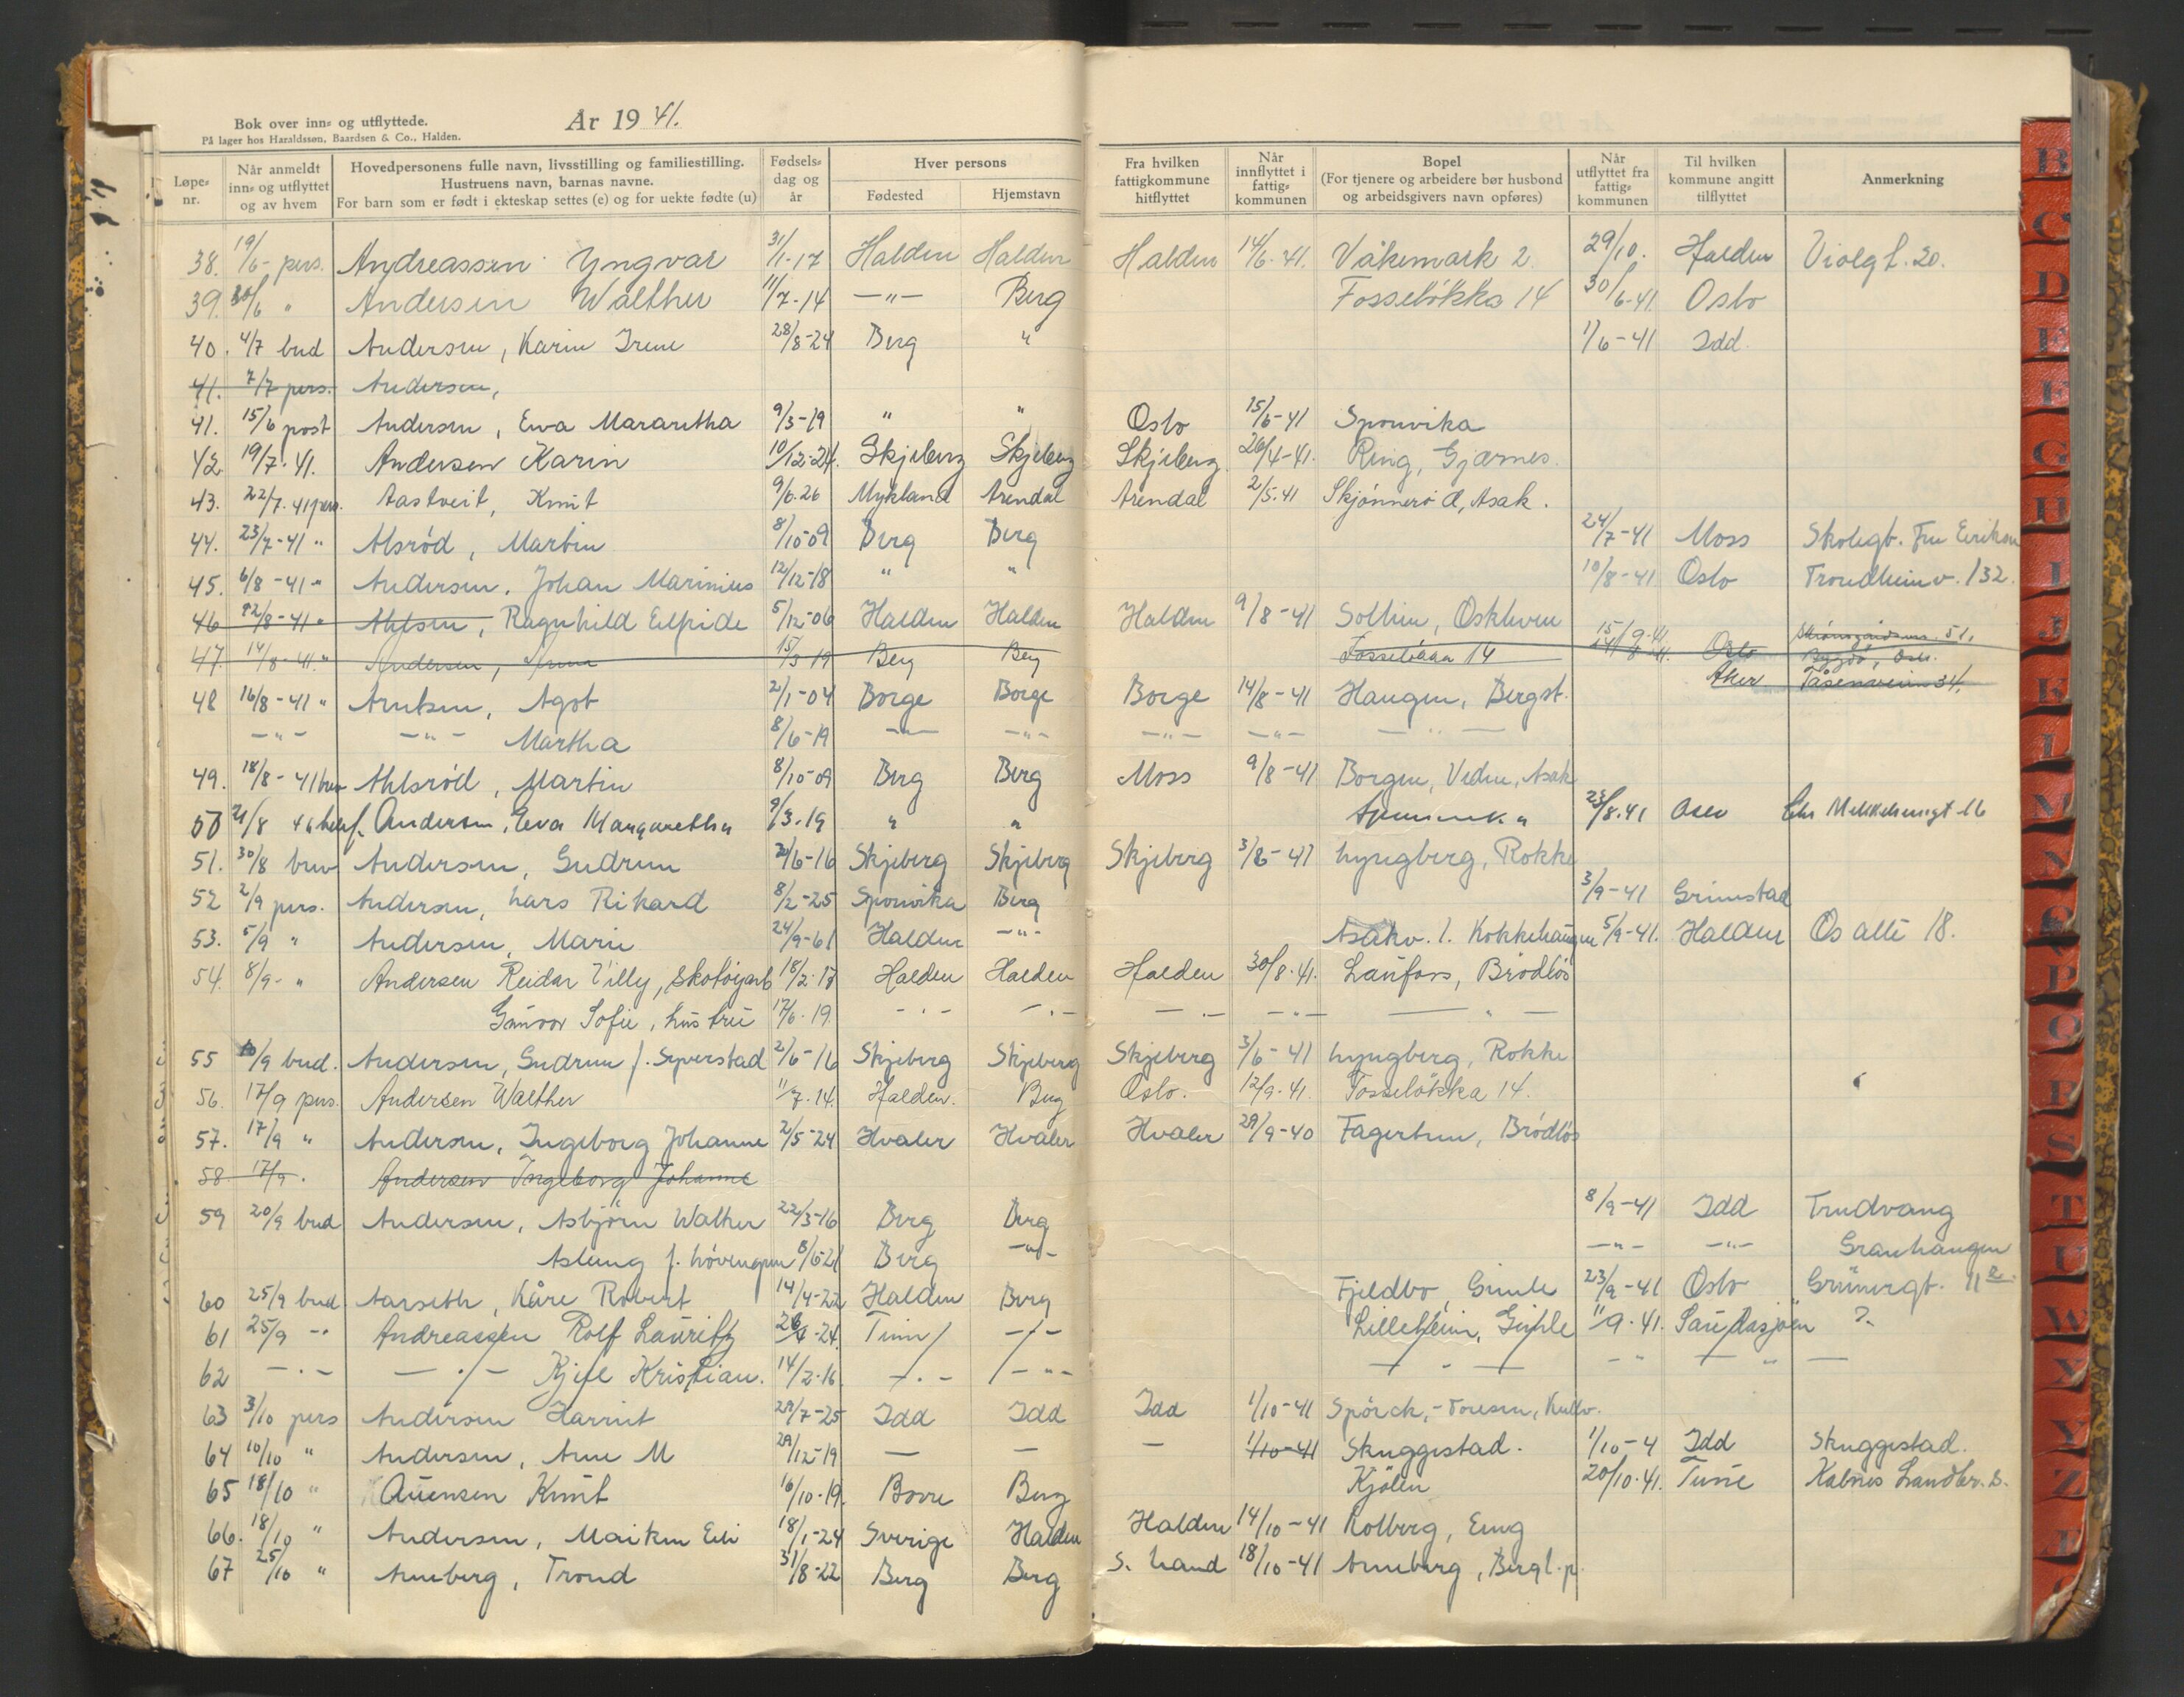 Bok over inn- og utflyttede.
På lager hos Haraldssøn, Baardsen & Co., Halden.
År 1941.
Løpe-nr. Når anmeldt inn- og utflyttet og av hvem Hovedpersonens fulle navn, livsstilling og familiestilling. Hustruens navn, barnas navne. For barn som er født i ekteskap settes (e) og for uekte fødte (u) Fødsels-dag og år Hver persons Fødested Hjemstavn Fra hvilken fattigkommune hitflyttet Når innflyttet i fattig-kommunen Bopel (For tjenere og arbeidere bør husbond og arbeidsgivers navn opføres) Når utflyttet fra fattig-kommunen Til hvilken kommune angitt tilflyttet Anmerkning
38. 19/6- pers. Andreassen Yngvar 31/1-17 Halden Halden Halden 14/6-41. Våkemark 2 29/10. Halden Violgt. 20.
39. 30/6 " Andersen Walther 11/7-14 —"— Berg Fosseløkka 14 30/6-41. Oslo
40. 4/7 bud Andersen, Karin Irene 28/8-24 Berg " 1/6-41 Idd.
41. 7/7 pers. Andersen,
41. 15/6 post Andersen, Ewa Mararetha 9/3-19 " " Oslo 15/6-41 Sponvika
42. 19/7-41. Andersen Karin 10/12-24. Skjeberg Skjeberg Skjeberg 26/4-41. Ring, Gjærnes.
43. 22/7-41 pers. Aastveit, Knut 9/6-26 Mykland Arendal Arendal 2/5-41 Skjønnerød, Asak.
44. 23/7-41 " Alsrød, Martin 8/10-09 Berg Berg 24/7-41 Moss Skolegt. Fru Eriksen
45. 6/8-41 " Andersen, Johan Marinius 12/12-18 " " 10/8-41 Oslo Trondheimv. 132.
46 12/8-41 " Ahlsen, Ragnhild Elfride 5/12-06 Halden Halden Halden 9/8-41 Solhein, Oskleven
47. 14/8-41. " Andersen, 15/3-19 Berg Berg Fosseløkka 14 15/9-41. Oslo 51.
Aker Tåsenveien 34.
48 16/8-41 " Arntsen, Agot 2/1-04 Borge Borge Borge 14/8-41 Haugen, Bergst.
—"— —"— Martha 8/6-19 —"— —"— —"— —"— —"—
49. 18/8-41 brev Ahlsrød, Martin 8/10-09 Berg Berg Moss 9/8-41 Borgen, Veden, Asak
50 21/8 41 Andersen, Eva Margaretha 9/3-19 " " 23/8-41 Oslo
51. 30/8 brev Andersen, Gudrun 20/6-16 Skjeberg Skjeberg Skjeberg 3/8-41 Lyngberg, Rokke
52 2/9 pers. Andersen, Lars Rikard 8/2-25 Sponvika Berg 3/9-41 Grimstad
53. 5/9 " Andersen, Marie 24/9-61 Halden —"— Asakv. 1. Kokkehaugen 5/9-41. Halden Os alle 18.
54. 8/9- " Andersen Reidar Villy, skotøyarb 18/2-17 Halden Halden Halden 30/8-41. Laufoss, Brødløs
Gunvor Sofie, hustru 17/6-19. —"— —"— —"— —"— —"—
55 10/9 bud. Andersen, Gudrun f. Syverstad 2/6-16 Skjeberg Skjeberg Skjeberg 3/6-41 Lyngberg, Rokke
56. 17/9 pers. Andersen Walther 11/7-14. Halden. Berg Oslo. 12/9-41. Fosseløkka 14.
57. 17/9 " Andersen, Ingeborg Johanne 2/5-24 Hvaler Hvaler Hvaler 29/9-40 Fagertun, Brødløs
58. 17/9. Andersen Ingeborg Johanne
59 20/9 bud Andersen, Asbjørn Walther 22/3-16 Berg Berg 8/9-41 Idd Trudvang
Aslaug f. Løvengren 8/6-21 Berg —"— —"— —"— Granhaugen
60 25/9 bud Aarseth, Kåre Robert 14/4-22 Halden Berg Fjeldbo, Gimle 23/9-41 Oslo Grünergt. 11
61 25/9 —"— Andreassen Rolf Lauritz 26/4-24. Tinn —"— Lilleheim, Gimle 11/9-41. Saudasjøen ?
62 —"— —"— Kjell Kristian. 14/2-16. —"— —"— —"— —"— —"—
63 3/10 pers Andersen Harriet 29/7-25 Idd Idd Idd 1/10-41 Spørck,- Toresen,
64 10/10 " Andersen, Arne M 29/12-19 — — — 1/10-41 Skuggestad. 1/10-4 Idd Skuggestad.
65 18/10 " Auensen Knut 16/10-19. Borre Berg Kjølen 20/10-41. Tune Kalnes Landbr. s.
66. 18/10 " Andersen, Maiken Eli 18/1-24 Sverige Halden Halden 14/10-41 Kolberg, Eng
67 25/10 " Arneberg, Trond 31/8-22 Berg Berg S. Land 18/10-41 Arneberg, Bergl. p.